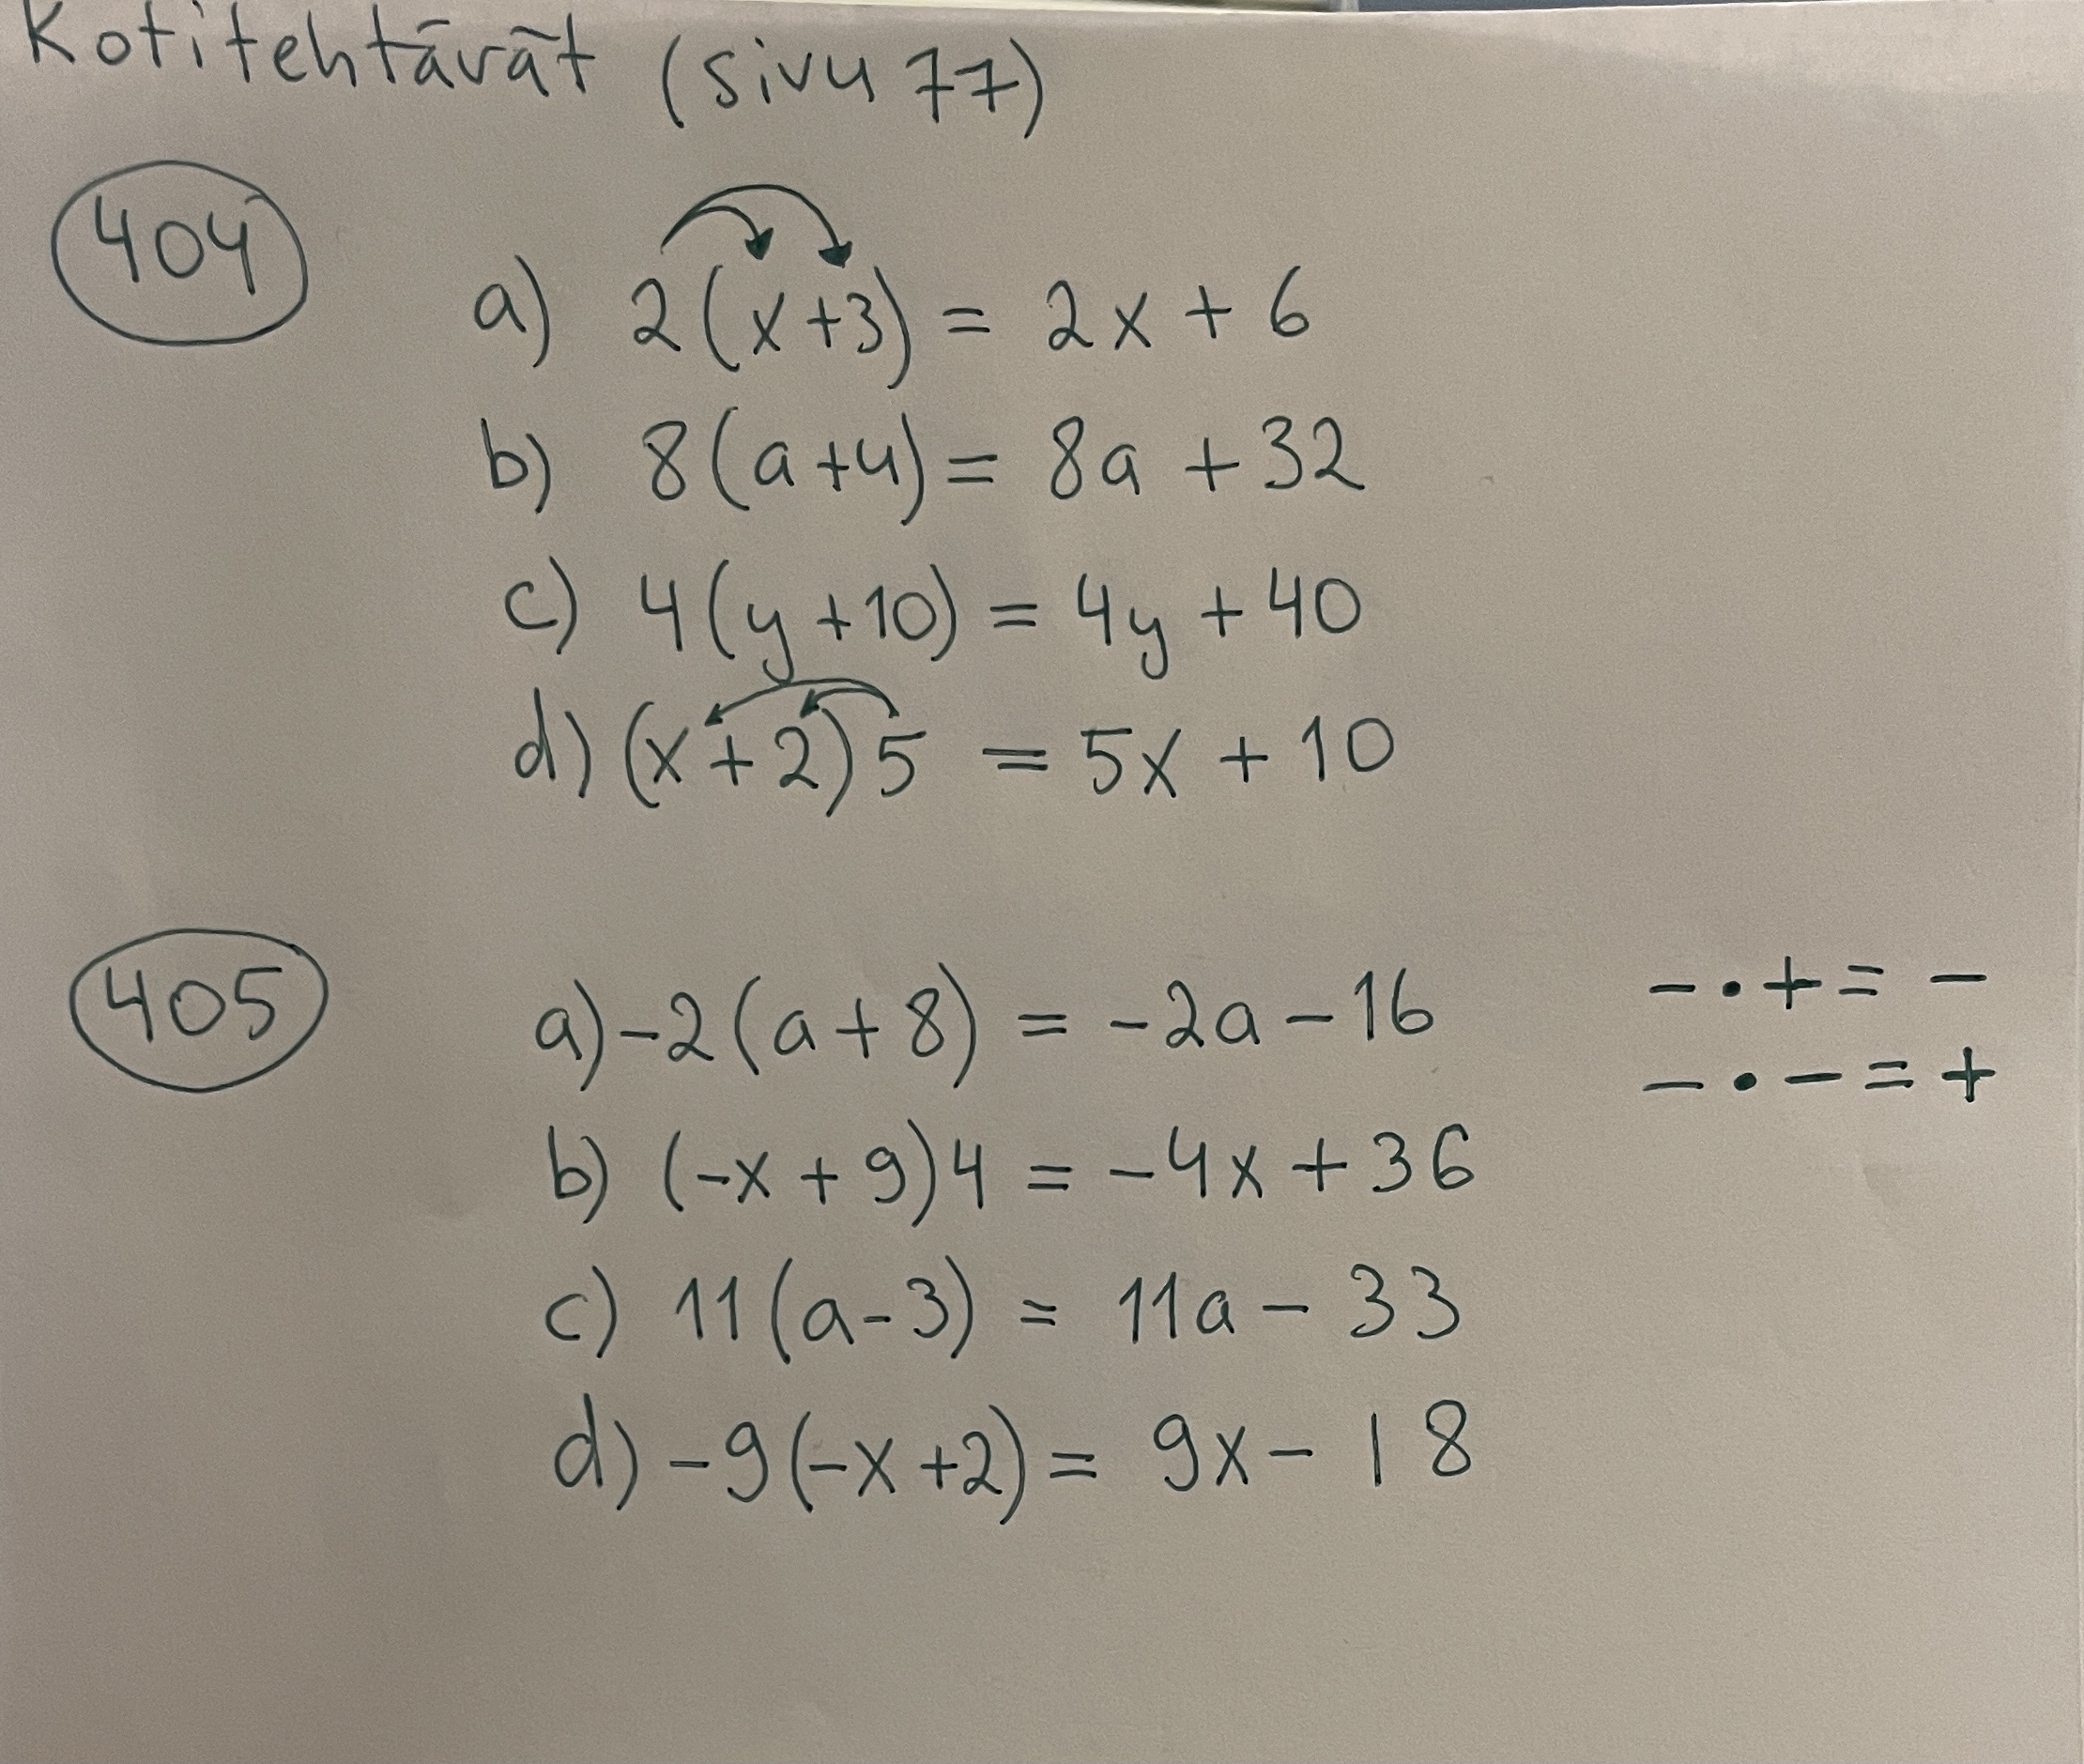 Kotitehtävät (sivu 77)
404
a) 2(x+3) = 2x + 6
b) 8(a+4) = 8a + 32
c) 4(y+10) = 4y + 40
d) (x+2)5 = 5x + 10
405
a) -2(a+8) = -2a - 16
- • + = -
- • - = +
b) (-x + 9)4 = -4x + 36
c) 11(a-3) = 11a - 33
d) -9(-x+2) = 9x - 18